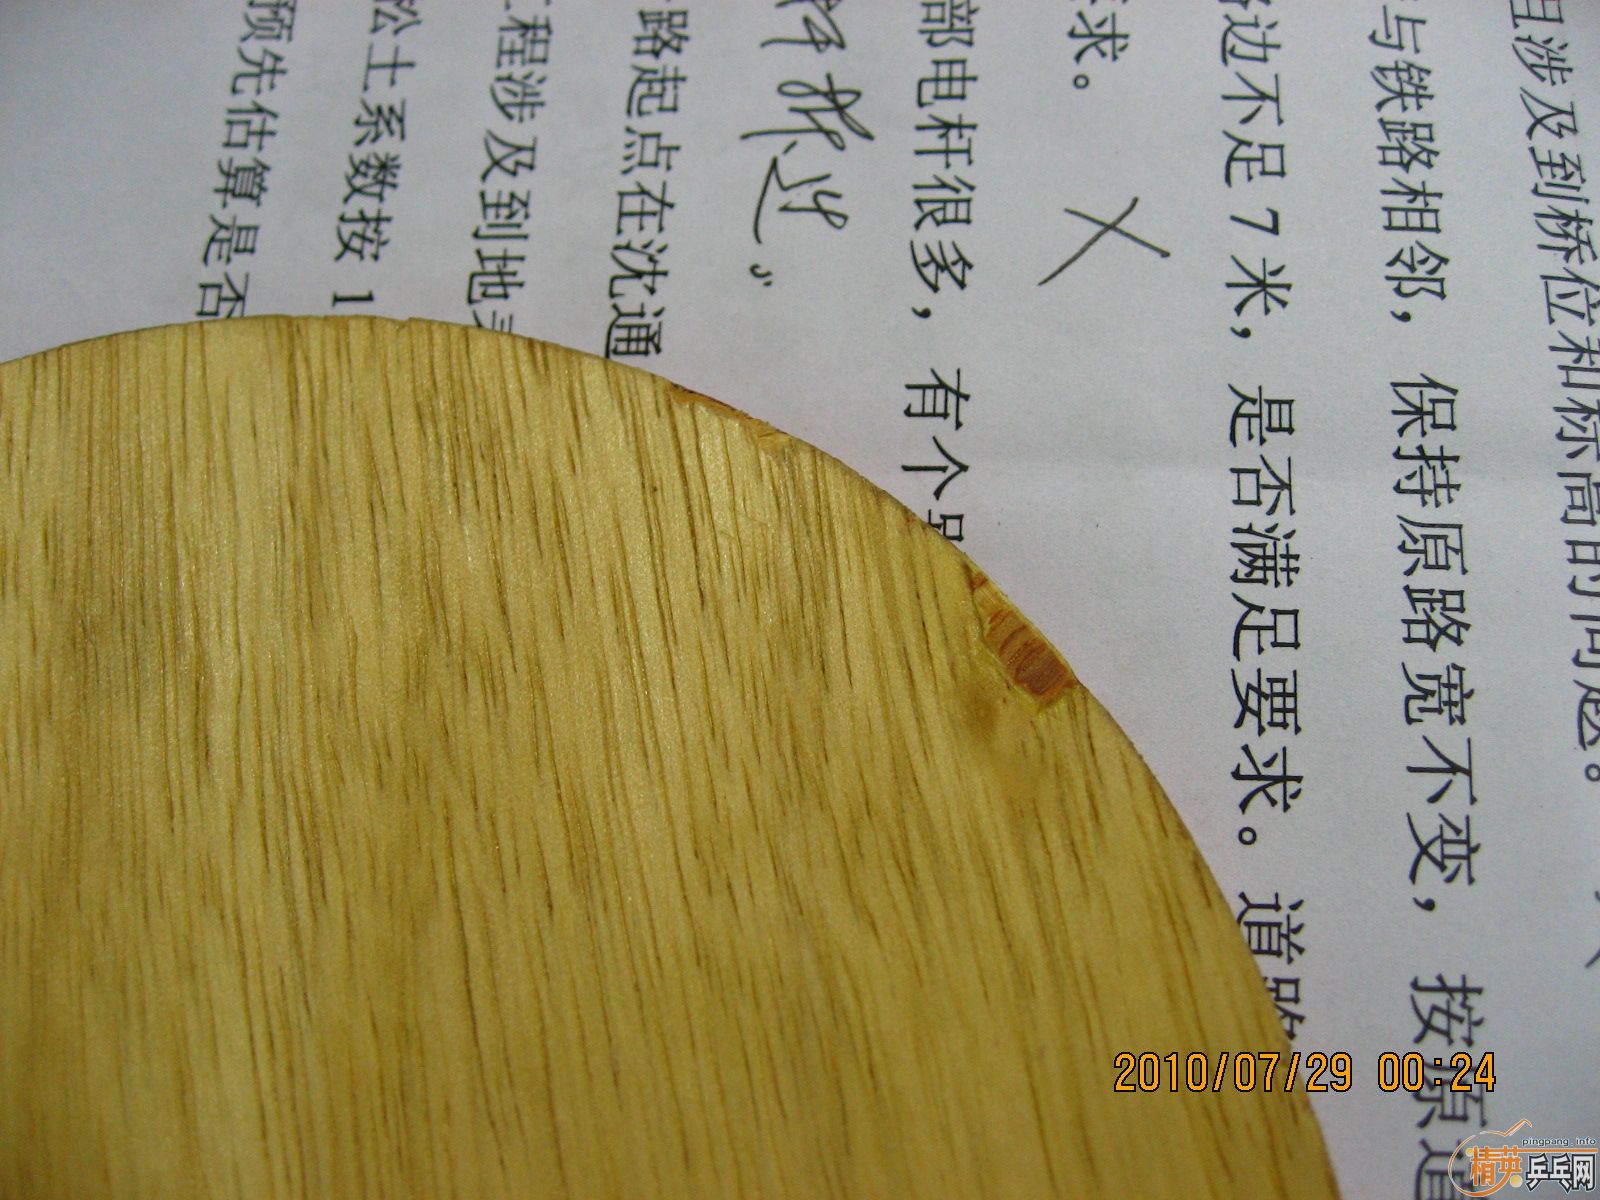 且涉及到桥位和标高的问题。
与铁路相邻，保持原路宽不变，按原道
边不足 7 米，是否满足要求。道路
求。
部电杆很多，有个别
拆迁”
路起点在沈通
工程涉及到地
松土系数按 1
预先估算是否
2010/07/29 00:24
pingpang.info
精英乒乓网